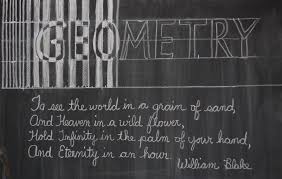 GEOMETRY
To see the world in a grain of sand,
And Heaven in a wild flower,
Hold Infinity in the palm of your hand,
And Eternity in an hour.
William Blake